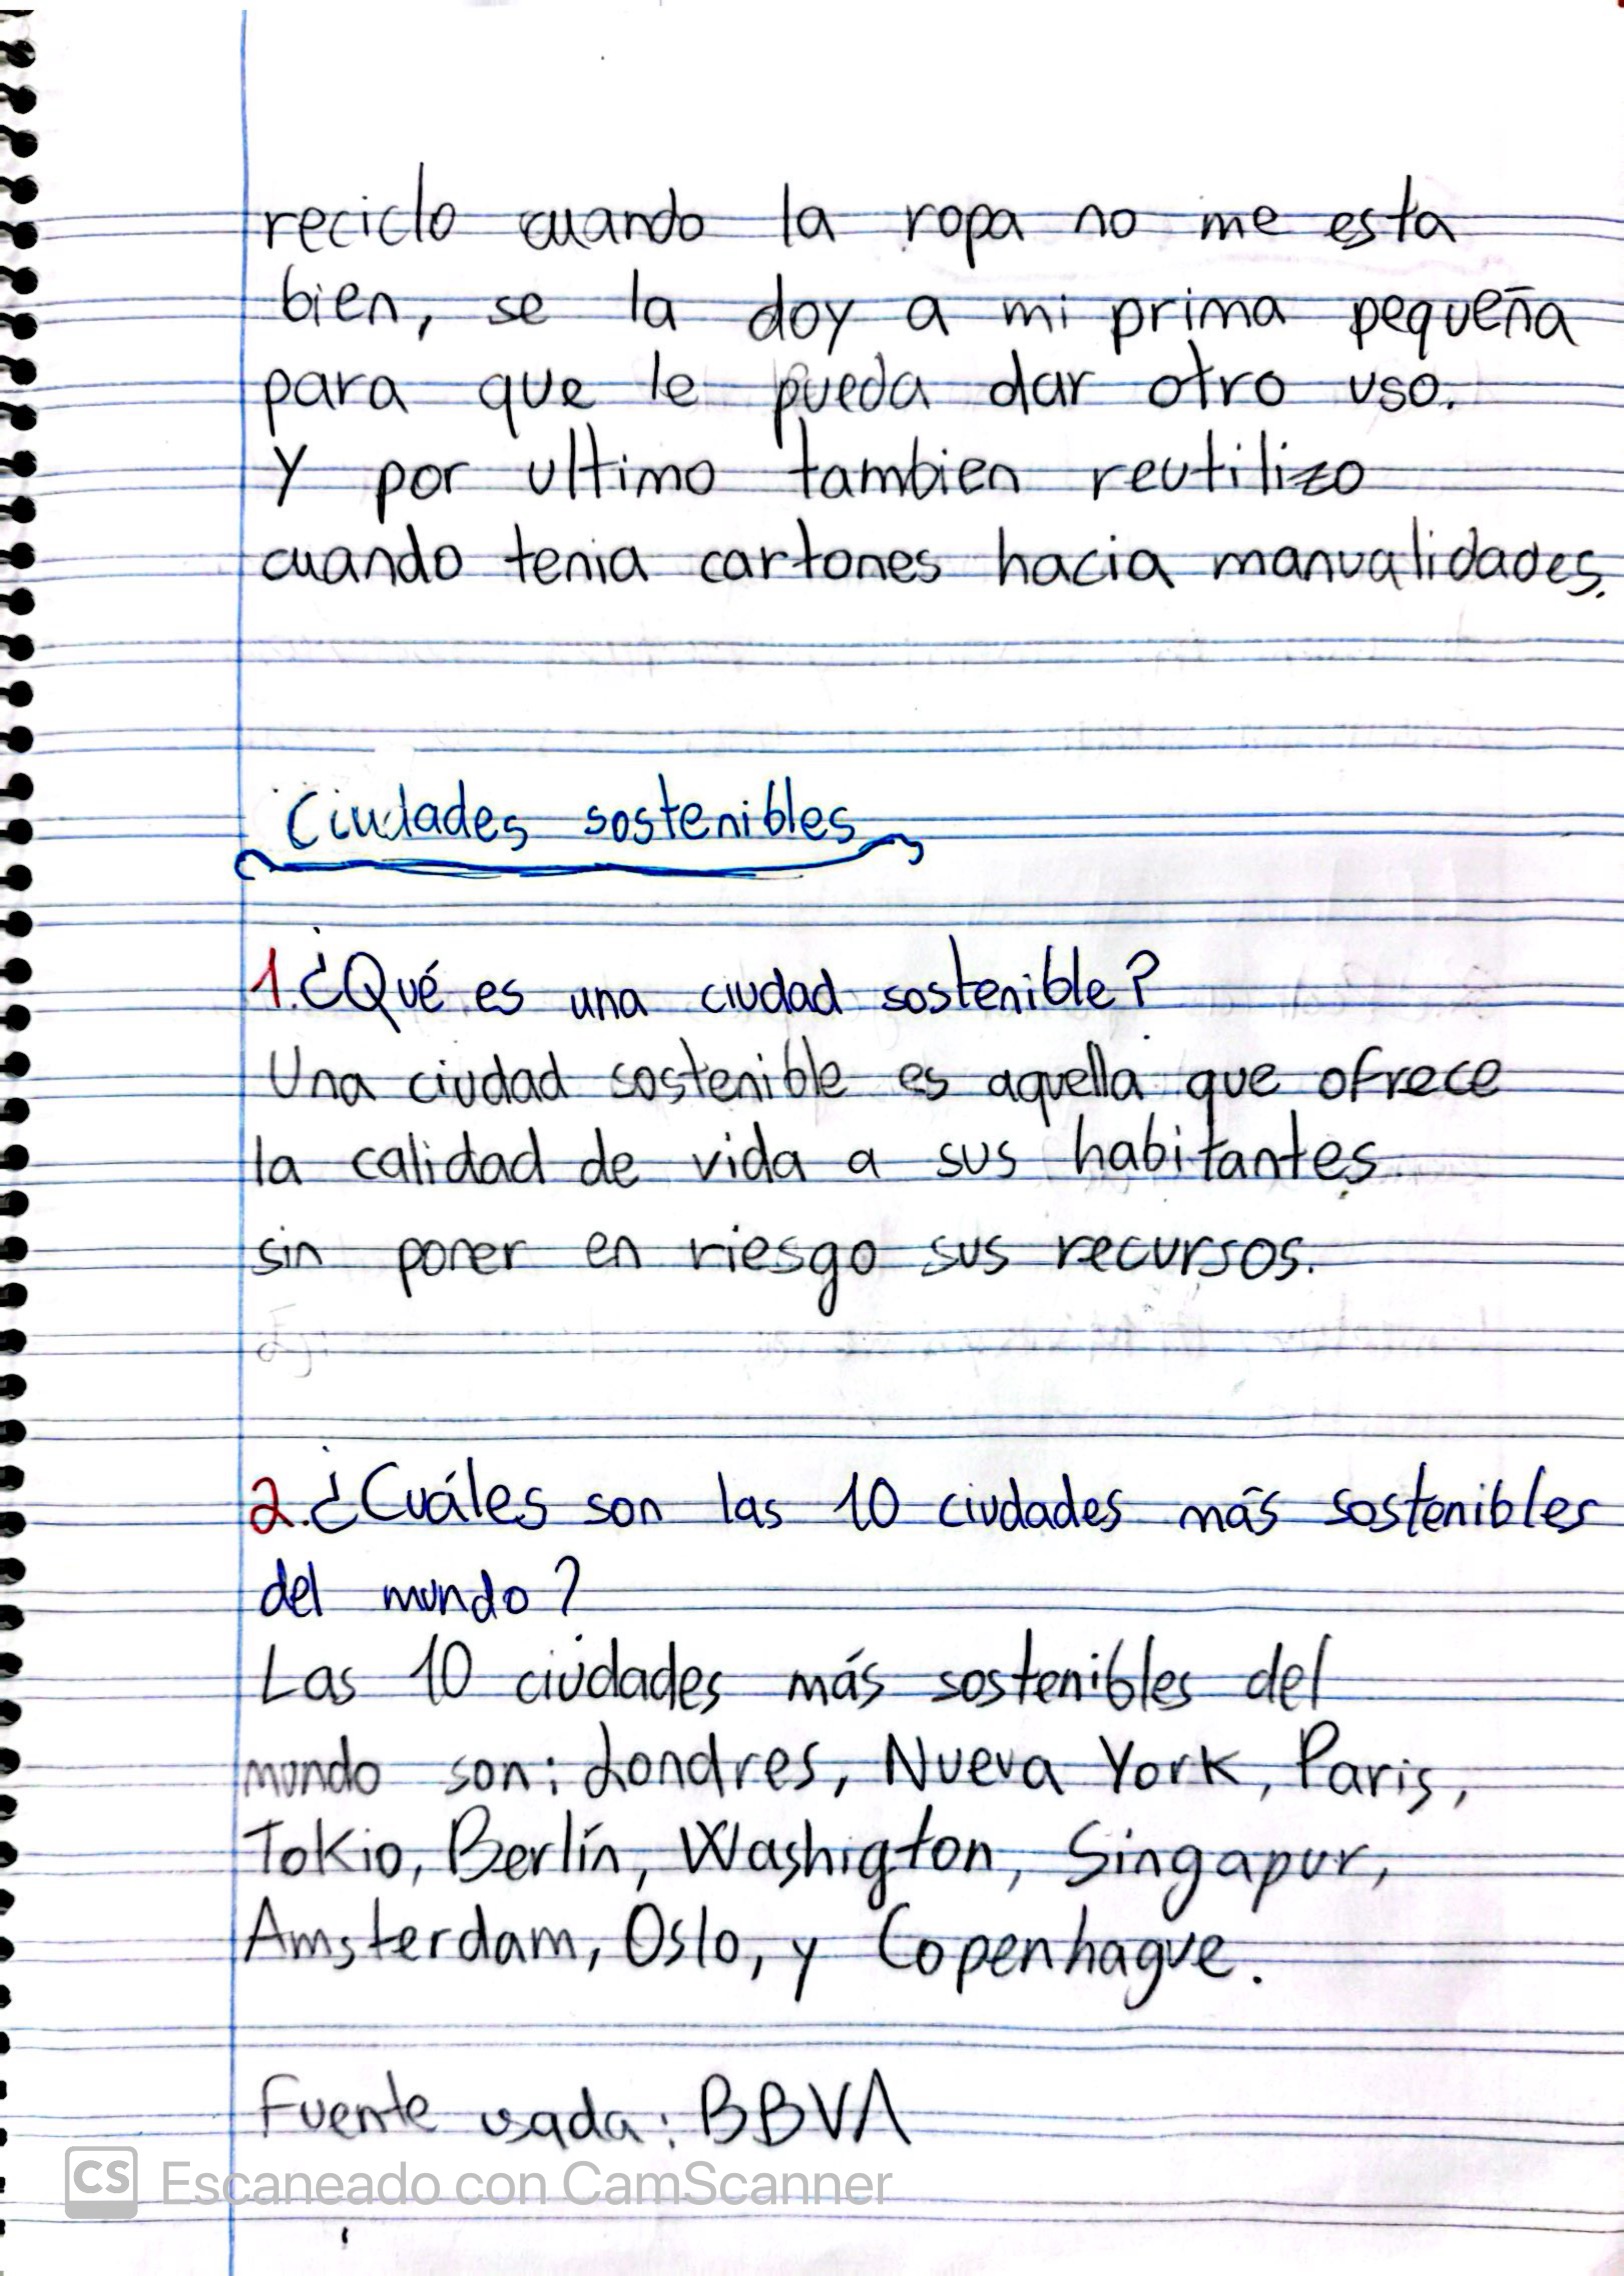 reciclo cuando la ropa no me esta
bien, se la doy a mi prima pequeña
para que le pueda dar otro uso.
Y por ultimo tambien reutilizo
cuando tenia cartones hacia manualidades.
Ciudades sostenibles
1. ¿Qué es una ciudad sostenible?
Una ciudad sostenible es aquella que ofrece
la calidad de vida a sus habitantes
sin poner en riesgo sus recursos.
2. ¿Cuáles son las 10 ciudades más sostenibles
del mundo?
Las 10 ciudades más sostenibles del
mundo son: Londres, Nueva York, Paris,
Tokio, Berlín, Washigton, Singapur,
Amsterdam, Oslo, y Copenhague.
Fuente usada: BBVA
CS Escaneado con CamScanner